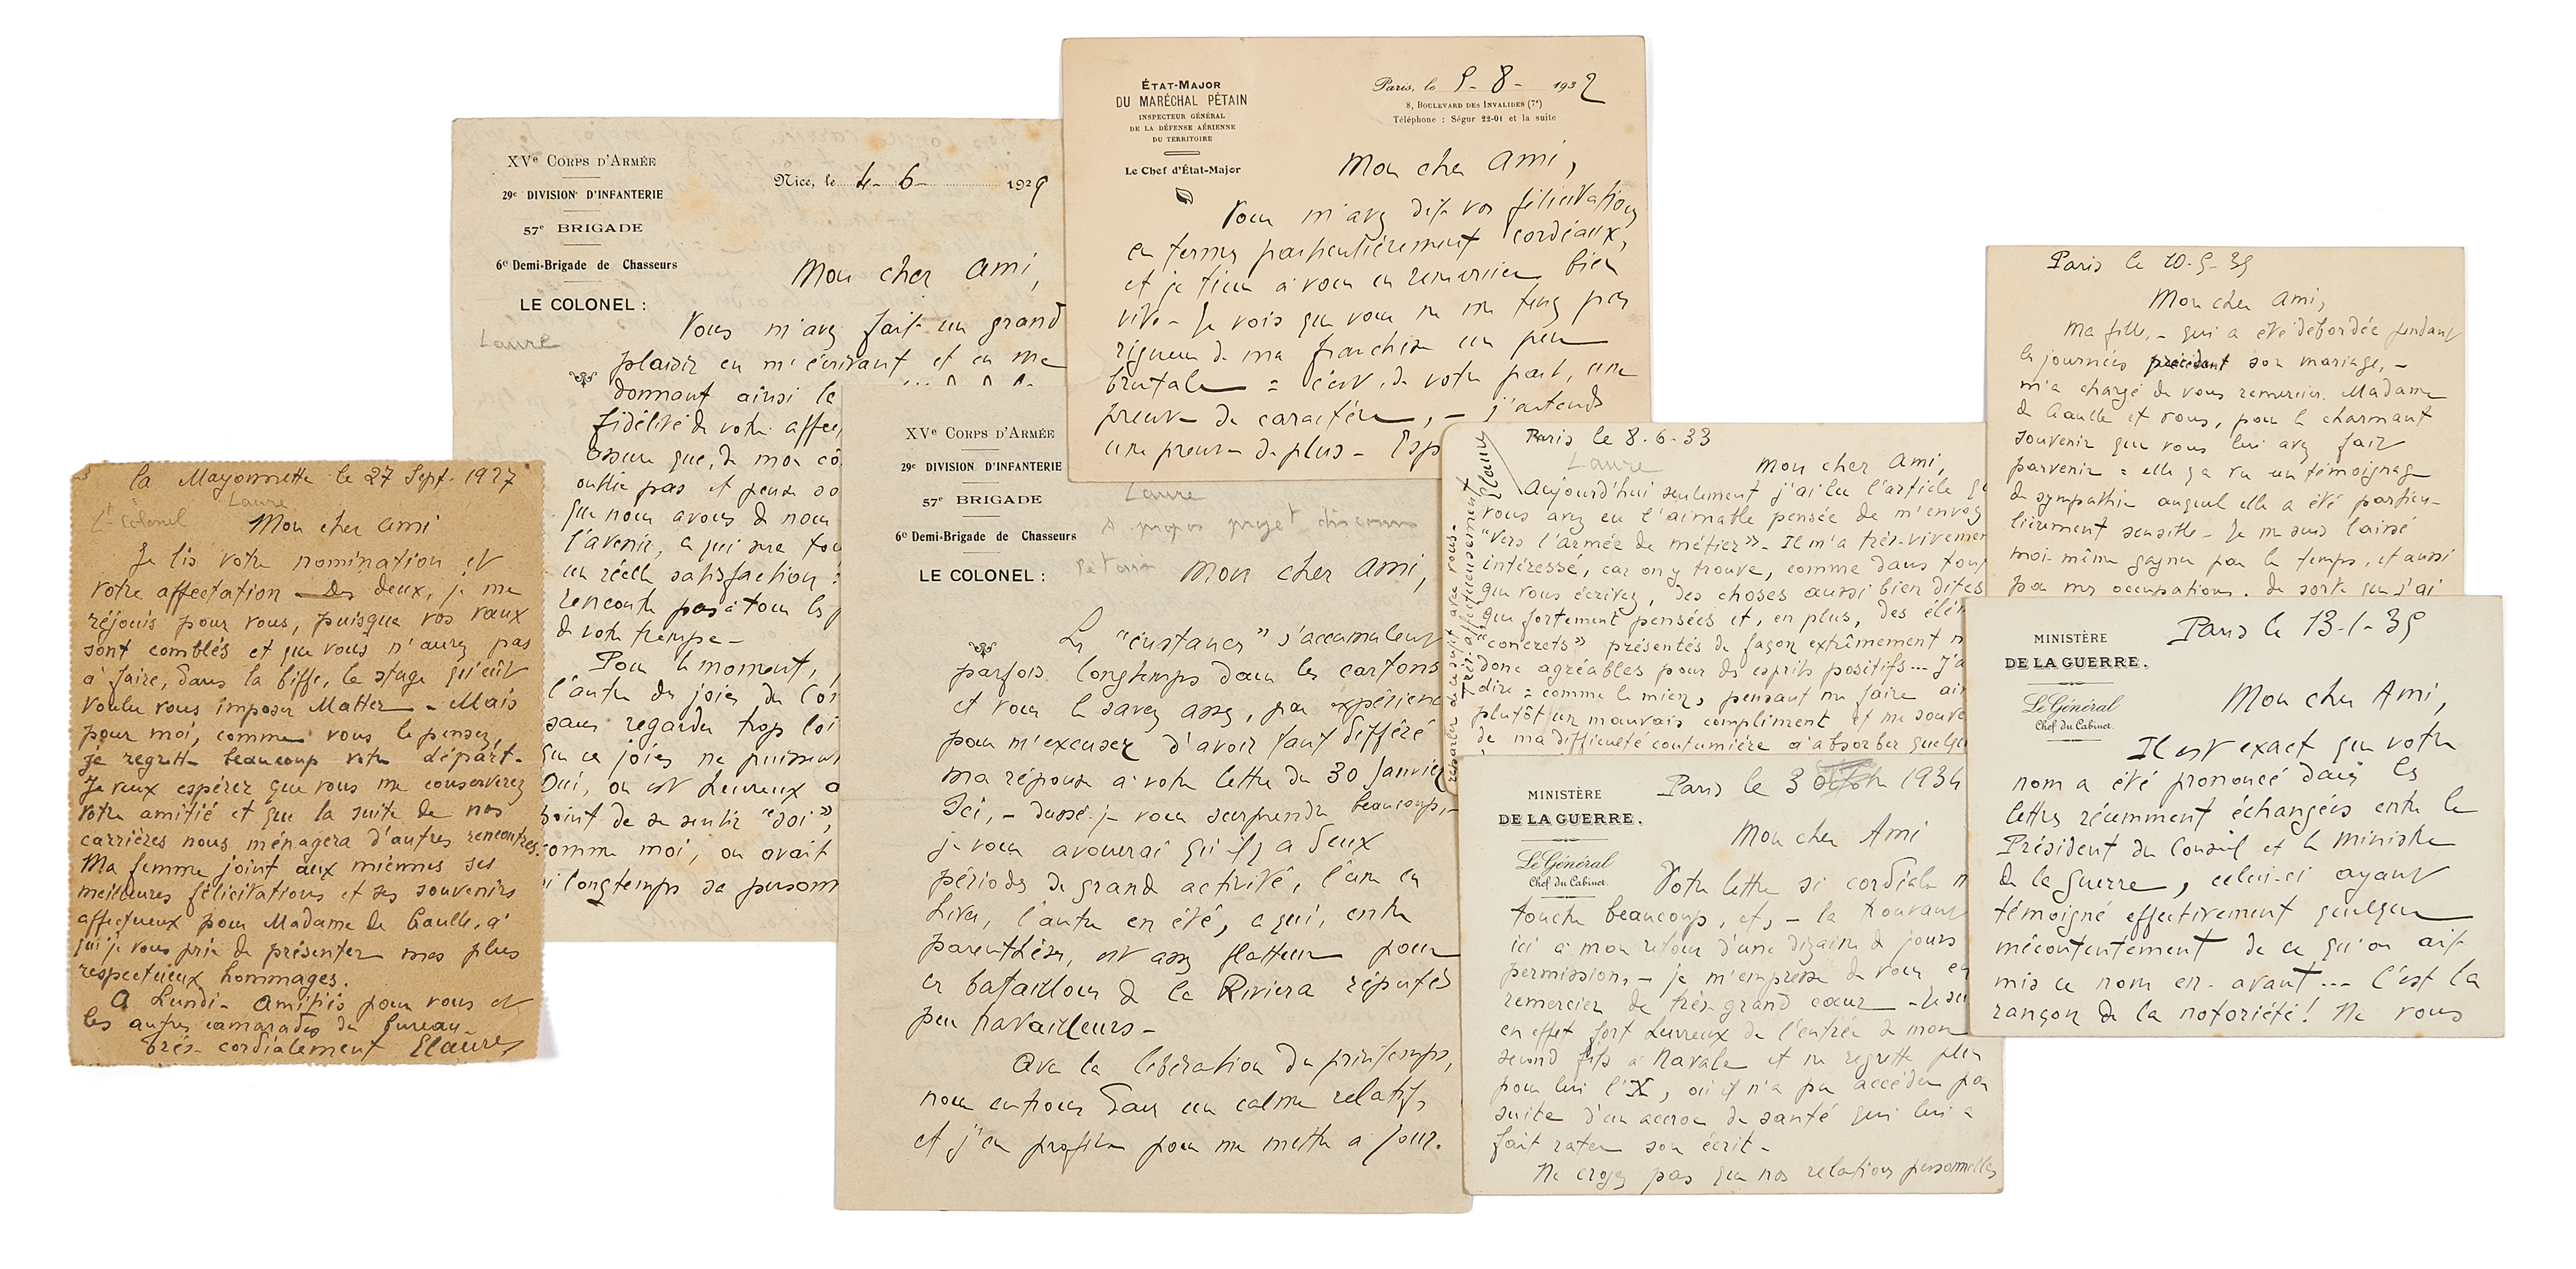 la Mayonnette le 27 Sept. 1927
Lt Colonel Laure
Mon cher ami
Je lis votre nomination et
votre affectation - Des deux, je me
réjouis pour vous, puisque vos vœux
sont comblés et que vous n'aurez pas
à faire, dans la biffe, le stage qu'eût
voulu vous imposer Matter - Mais
pour moi, comme vous le pensez,
je regrette beaucoup votre départ.
Je veux espérer que vous me conserverez
votre amitié et que la suite de nos
carrières nous ménagera d'autres rencontres.
Ma femme joint aux miennes ses
meilleures félicitations et ses souvenirs
affectueux pour Madame de Gaulle, à
qui je vous prie de présenter mes plus
respectueux hommages.
A Lundi - Amitiés pour vous et
les autres camarades du bureau -
très cordialement Elaure
XVe CORPS D'ARMÉE
29e DIVISION D'INFANTERIE
57e BRIGADE
6e Demi-Brigade de Chasseurs
LE COLONEL :
Laure
Nice, le 4-6- 1929
Mon cher ami,
Vous m'avez fait un grand
plaisir en m'écrivant et en me
donnant ainsi le
fidélité de votre affec
assure que, de mon cô
oublie pas et pense so
que nous avons de nou
l'avenir, ce qui sera tou
un réelle satisfaction :
rencontre pas à tous les
de votre trempe -
Pour le moment,
l'autre des joies du Co
sans regarder trop loi
que ces joies ne puissen
Oui, on est heureux
point de se sentir "soi",
comme moi, on avait
si longtemps sa person
XVe CORPS D'ARMÉE
29e DIVISION D'INFANTERIE
57e BRIGADE
6e Demi-Brigade de Chasseurs
LE COLONEL :
Laure
à propos projet discours
Pétain
Mon cher ami,
Les "instances" s'accumulent
parfois longtemps dans les cartons
et vous le savez assez, par expérienc
pour m'excuser d'avoir tant différé
ma réponse à votre lettre du 30 Janvier
Ici, - dussé-je vous surprendre beaucoup, -
je vous avouerai qu'il y a deux
périodes de grande activité, l'une en
hiver, l'autre en été, ce qui, entre
parenthèses, est assez flatteur pour
ces bataillons de la Riviera réputés
peu travailleurs -
Avec la libération du printemps,
nous entrons dans un calme relatif,
et j'en profite pour me mettre à jour.
ÉTAT-MAJOR
DU MARÉCHAL PÉTAIN
INSPECTEUR GÉNÉRAL
DE LA DÉFENSE AÉRIENNE
DU TERRITOIRE
Le Chef d'État-Major
Paris, le 5-8- 1932
8, BOULEVARD DES INVALIDES (7e)
Téléphone : Ségur 22-01 et la suite
Mon cher ami,
Vous m'avez dit vos félicitations
en termes particulièrement cordiaux,
et je tiens à vous en remercier bien
vite - Je vois que vous ne me tenez pas
rigueur de ma franchise un peu
brutale = c'est, de votre part, une
preuve de caractère, - j'attends
une preuve de plus - Esp
Paris le 8-6-33
Laure
Mon cher Ami,
Aujourd'hui seulement j'ai lu l'article qu
vous avez eu l'aimable pensée de m'envoy
"Vers l'armée de métier" - Il m'a très-vivemen
intéressé, car on y trouve, comme dans tou
que vous écrivez, des choses aussi bien dites
que fortement pensées et, en plus, des élém
"concrets" présentés de façon extrêmement n
donc agréables pour des esprits positifs... J'a
dire = comme le mien, pensant me faire ain
plutôt un mauvais compliment et me souve
de ma difficulté coutumière à absorber quelqu
très affectueusement Elaure
MINISTÈRE
DE LA GUERRE.
Le Général
Chef du Cabinet.
Paris le 3 octobre 1934
Mon cher Ami
Votre lettre si cordiale m
touche beaucoup, et, - la trouvant
ici à mon retour d'une dizaine de jours
permission, - je m'empresse de vous en
remercier de très grand cœur - Je sui
en effet fort heureux de l'entrée de mon
second fils à Navale et ne regrette plus
pour lui l'X, où il n'a pu accéder par
suite d'un accroc de santé qui lui a
fait rater son écrit -
Ne croyez pas que nos relations personnelles
Paris le 10-5-35
Mon cher Ami,
Ma fille, - qui a été débordée pendant
les journées précédant son mariage, -
m'a chargé de vous remercier, Madame
de Gaulle et vous, pour le charmant
souvenir que vous lui avez fait
parvenir = elle y a vu un témoignage
de sympathie auquel elle a été particu-
lièrement sensible - Je me suis laissé
moi-même gagner par le temps, et aussi
par mes occupations. de sorte que j'ai
MINISTÈRE
DE LA GUERRE.
Le Général
Chef du Cabinet.
Paris le 13-1-35
Mon cher Ami,
Il est exact que votre
nom a été prononcé dans les
lettres récemment échangées entre le
Président du Conseil et le ministre
de la Guerre, celui-ci ayant
témoigné effectivement quelque
mécontentement de ce qu'on ait
mis ce nom en avant... C'est la
rançon de la notoriété ! Ne vous